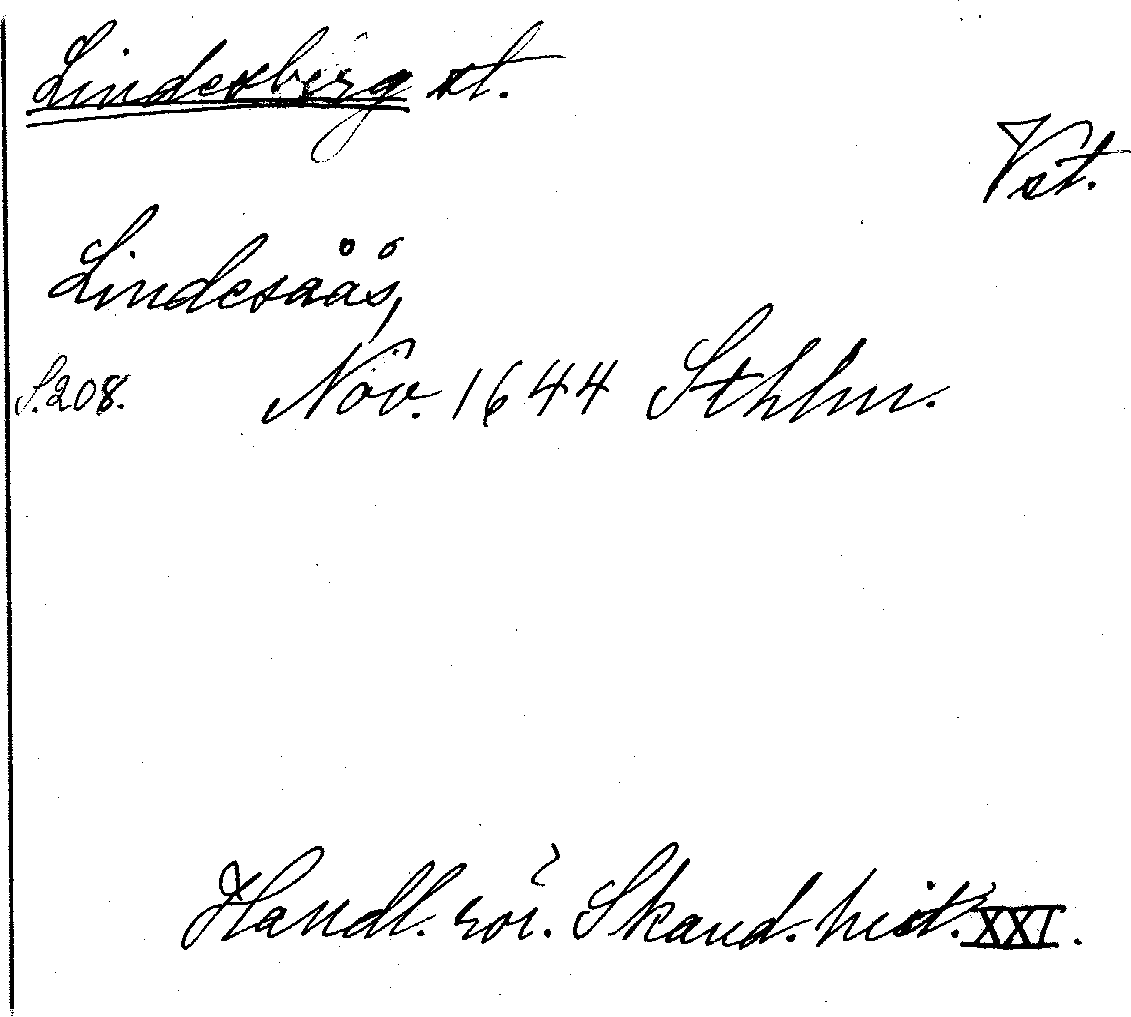 Lindesberg st.
Vst.
Lindesåås,
S.208. Nov. 1644 Sthlm.
Handl. rör. Skand. hist. XXI.